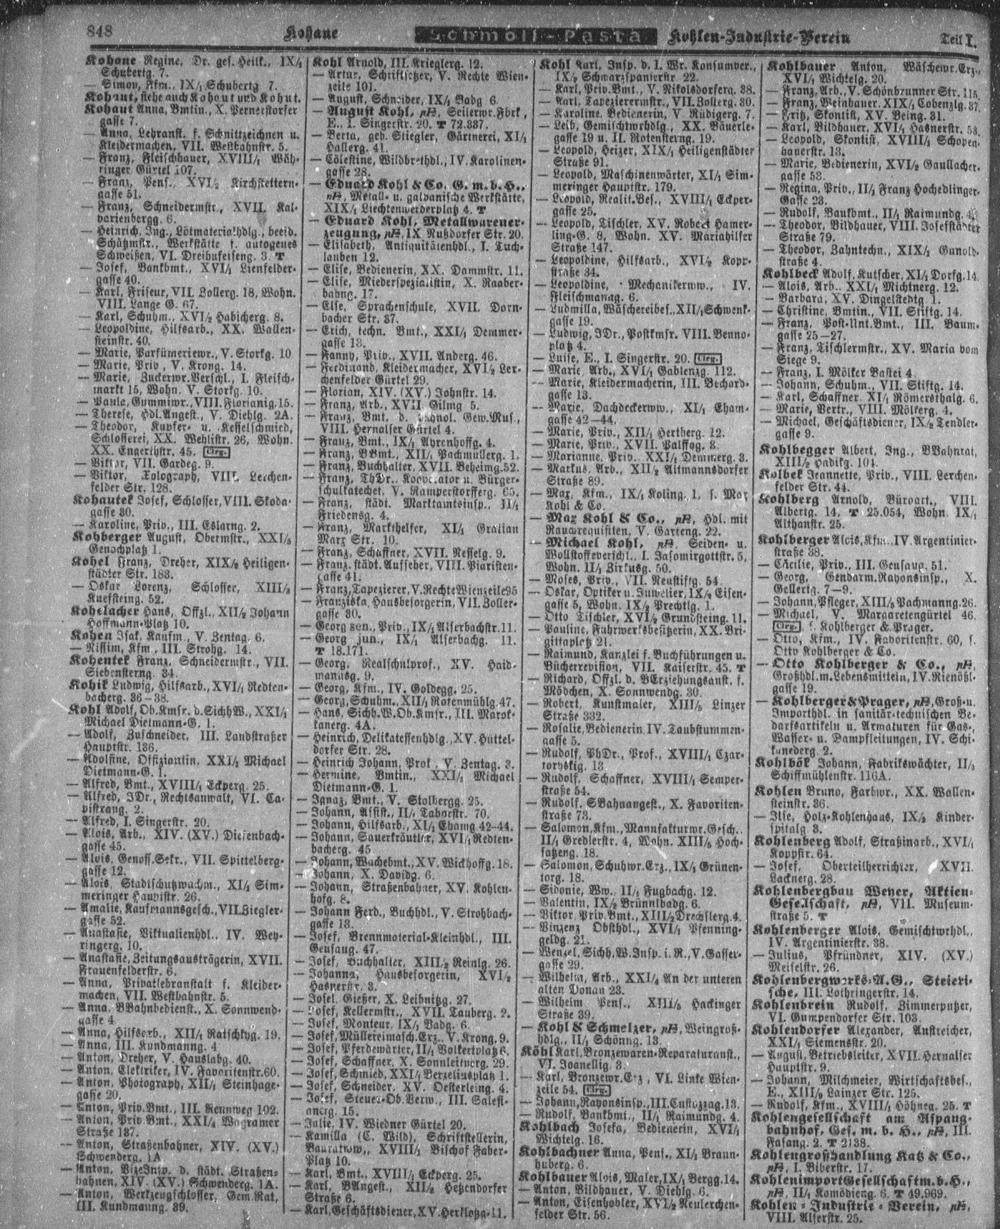 848
Kohane
Schmoll-Pasta
Kohlen-Industrie-Verein
Teil I.
Kohane Regine, Dr. ges. Heilk., IX/4
Schubertg. 7.
— Simon, Kfm., IX/4 Schubertg. 7.
Kohaut, siehe auch Kohout und Kohut.
Kohaut Anna, Bmtin., X. Pernerstorfer
gasse 7.
— Anna, Lehranst. f. Schnittzeichnen u.
Kleidermachen, VII. Westbahnstr. 5.
— Franz, Fleischhauer, XVIII/1 Wäh-
ringer Gürtel 107.
— Franz, Pens., XVI/2 Kirchstettern-
gasse 51.
— Franz, Schneidermstr., XVII. Kal-
varienbergg. 6.
— Heinrich, Ing., Lötmaterialhdlg., beeid.
Schätzmstr., Werkstätte f. autogenes
Schweißen, VI. Dreihufeiseng. 3. T
— Josef, Bankbmt., XVI/1 Lienfelder-
gasse 40.
— Karl, Friseur, VII. Zollerg. 18, Wohn.
VIII. Lange G. 67.
— Karl, Schuhm., XVI/2 Habicherg. 8.
— Leopoldine, Hilfsarb., XX. Wallen-
steinstr. 40.
— Marie, Parfümeriewr., V. Storkg. 10
— Marie, Priv., V. Krong. 14.
— Marie, Zuckerwr.Verschl., I. Fleisch-
markt 15, Wohn. V. Storkg. 10.
— Paula, Gummiwr., VIII. Florianig. 15.
— Therese, Hdl.Angest., V. Diehlg. 2A.
— Theodor, Kupfer- u. Kesselschmied,
Schlosserei, XX. Wehlistr. 26, Wohn.
XX. Engerthstr. 45. Clrg.
— Viktor, VII. Gardeg. 9.
— Viktor, Xylograph, VIII. Lerchen-
felder Str. 128.
Kohautek Josef, Schlosser, VIII. Skoda-
gasse 30.
— Karoline, Priv., III. Eslarng. 2.
Kohberger August, Obermstr., XXI/3
Genochplatz 1.
Kohel Franz, Dreher, XIX/2 Heiligen-
städter Str. 183.
— Oskar Lorenz, Schlosser, XIII/3
Kuefsteing. 52.
Kohelacher Hans, Offzl., XII/2 Johann
Hoffmann-Platz 10.
Kohen Isak, Kaufm., V. Zentag. 6.
— Nissim, Kfm., III. Strohg. 14.
Kohentek Franz, Schneidermstr., VII.
Siebensterng. 34.
Kohik Ludwig, Hilfsarb., XVI/1 Redten-
bacherg. 36-38.
Kohl Adolf, Ob.Kmsr. d. SichhW., XXI/1
Michael Dietmann-G. 1.
— Adolf, Zuschneider, III. Landstraßer
Hauptstr. 136.
— Adolfine, Offiziantin, XXI/1 Michael
Dietmann-G. 1.
— Alfred, Bmt., XVIII/2 Eckperg. 25.
— Alfred, JDr., Rechtsanwalt, VI. Ca-
pistrang. 2.
— Alfred, I. Singerstr. 20.
— Alois, Arb., XIV. (XV.) Diefenbach-
gasse 45.
— Alois, Genoss.Sekr., VII. Spittelberg-
gasse 12.
— Alois, Stadtschutzwachm., XI/1 Sim-
meringer Hauptstr. 26.
— Amalie, Kaufmannsgesch., VII. Ziegler-
gasse 52.
— Anastasie, Viktualienhdl., IV. Wey-
ringerg. 10.
— Anastasie, Zeitungsausträgerin, XVII.
Frauenfelderstr. 6.
— Anna, Privatlehranstalt f. Kleider-
machen, VII. Westbahnstr. 5.
— Anna, BBahnbedienst., X. Sonnwend-
gasse 4.
— Anna, Hilfsarb., XII/1 Ratschkyg. 19.
— Anna, III. Kundmanng. 4
— Anton, Dreher, V. Hauslabg. 40.
— Anton, Elektriker, IV. Favoritenstr. 60.
— Anton, Photograph, XII/1 Steinhage-
gasse 20.
— Anton, Priv.Bmt., III. Rennweg 102.
— Anton, Priv.Bmt., XXI/4 Wagramer
Straße 187.
— Anton, Straßenbahner, XIV. (XV.)
Schwenderg. 1A
— Anton, VizeInsp. d. städt. Straßen-
bahnen, XIV. (XV.) Schwenderg. 1A.
— Anton, Werkzeugschlosser, Gem.Rat,
III. Kundmanng. 39.
Kohl Arnold, III. Krieglerg. 12.
— Artur, Schriftsetzer, V. Rechte Wien-
zeile 101.
— August, Schneider, IX/1 Badg. 6
— August Kohl, pB., Seilerwr.Fbrk.,
E., I. Singerstr. 20. T 72.387.
— Berta, geb. Stiegler, Gärtnerei, XI/1
Hallerg. 41.
— Cölestine, Wildbrethdl., IV. Karolinen-
gasse 28.
— Eduard Kohl & Co. G. m. b. H.,
pB., Metall- u. galvanische Werkstätte,
XIX/1 Liechtenwerderplatz 4. T
— Eduard Kohl, Metallwarener-
zeugung, pB., IX. Nußdorfer Str. 20.
— Elisabeth, Antiquitätenhdl., I. Tuch-
lauben 12.
— Elise, Bedienerin, XX. Dammstr. 11.
— Elise, Miederspezialistin, X. Raaber-
bahng. 17.
— Else, Sprachenschule, XVII. Dorn-
bacher Str. 37.
— Erich, techn. Bmt., XXI/1 Demmer-
gasse 13.
— Fanny, Priv., XVII. Anderg. 46.
— Ferdinand, Kleidermacher, XVI/1 Ler-
chenfelder Gürtel 29.
— Florian, XIV. (XV.) Johnstr. 14.
— Franz, Arb., XVII. Gilmg. 5.
— Franz, Bmt. d. Technol. Gew.Mus.,
VIII. Hernalser Gürtel 4.
— Franz, Bmt., IX/1 Ayrenhoffg. 4.
— Franz, BBmt., XII/1 Pachmüllerg. 1.
— Franz, Buchhalter, XVII. Beheimg. 52.
— Franz, ThDr., Kooperator u. Bürger-
schulkatechet, V. Ramperstorfferg. 65.
— Franz, städt. Marktamtsinsp., II/1
Friedensg. 4.
— Franz, Markthelfer, XI/1 Gratian
Marx Str. 10.
— Franz, Schaffner, XVII. Nesselg. 9.
— Franz, städt. Aufseher, VIII. Piaristen-
gasse 41.
— Franz, Tapezierer, V. Rechte Wienzeile 95
— Franziska, Hausbesorgerin, VII. Zoller-
gasse 30.
— Georg sen., Priv., IX/4 Alserbachstr. 11.
— Georg jun., IX/4 Alserbachg. 11.
T 18.171.
— Georg, Realschulprof., XV. Haid-
mannsg. 9.
— Georg, Kfm., IV. Goldegg. 25.
— Georg, Schuhm., XII/1 Rotenmühlg. 47.
— Hans, Sichh.W.Ob.Kmsr., III. Marok-
kanerg. 4A.
— Heinrich, Delikatessenhdlg., XV. Hüttel-
dorfer Str. 28.
— Heinrich Johann, Prof., V. Zentag. 3.
— Hermine, Bmtin., XXI/1 Michael
Dietmann-G. 1.
— Ignaz, Bmt., V. Stolbergg. 25.
— Johann, Assist., II/1 Taborstr. 70.
— Johann, Hilfsarb., XI/1 Ehamg. 42-44.
— Johann, Sauerkräutler, XVI/1 Redten-
bacherg. 45
— Johann, Wachebmt., XV. Wickhoffg. 18.
— Johann, X. Davidg. 6.
— Johann, Straßenbahner, XV. Kohlen-
hofg. 8.
— Johann Ferd., Buchhdl., V. Strohbach-
gasse 13.
— Josef, Brennmaterial-Kleinhdl., III.
Geusaug. 47.
— Josef, Buchhalter, XIII/2 Reinlg. 26.
— Johanna, Hausbesorgerin, XVI/2
Hasnerstr. 3.
— Josef, Gießer, X. Leibnitzg. 27.
— Josef, Kellermstr., XVII. Tauberg. 2.
— Josef, Monteur, IX/1 Badg. 6.
— Josef, Müllereimasch.Erz., V. Krong. 9.
— Josef, Pferdewärter, II/1 Volkertplatz 6.
— Josef, Schaffner, X. Sonnleitnerg. 29.
— Josef, Schmied, XXI/1 Berzeliusplatz 1.
— Josef, Schneider, XV. Oesterleing. 4.
— Josef, Steuer-Ob.Verw., III. Salesi-
anerg. 15.
— Julie, IV. Wiedner Gürtel 20.
— Kamilla (C. Wild), Schriftstellerin,
Bauratsww., XVIII/1 Bischof Faber-
Platz 10.
— Karl, Bmt., XVIII/1 Eckperg. 25.
— Karl, BAngest., XII/2 Hetzendorfer
Straße 6.
— Karl, Geschäftsdiener, XV. Herklotzg. 11.
Kohl Karl, Insp. d. I. Wr. Konsumver.,
IX/4 Schwarzspanierstr. 22.
— Karl, Priv.Bmt., V. Nikolsdorferg. 38.
— Karl, Tapezierermstr., VII. Zollerg. 30.
— Karoline, Bedienerin, V. Rüdigerg. 7.
— Leib, Gemischtwrhdlg., XX. Bäuerle-
gasse 19 u. II. Rotensterng. 19.
— Leopold, Heizer, XIX/1 Heiligenstädter
Straße 91.
— Leopold, Maschinenwärter, XI/1 Sim-
meringer Hauptstr. 179.
— Leopold, Realit.Bes., XVIII/1 Eckper-
gasse 25.
— Leopold, Tischler, XV. Robert Hamer-
ling-G. 8, Wohn. XV. Mariahilfer
Straße 147.
— Leopoldine, Hilfsarb., XVI/2 Kopp-
straße 34.
— Leopoldine, Mechanikersww., IV.
Fleischmanng. 6.
— Ludmilla, Wäschereibes., XII/1 Schwenk-
gasse 19.
— Ludwig, JDr., Postkmsr., VIII. Benno-
platz 4.
— Luise, E., I. Singerstr. 20. Clrg.
— Marie, Arb., XVI/1 Gablenzg. 112.
— Marie, Kleidermacherin, III. Bechard-
gasse 13.
— Marie, Dachdeckersww., XI/1 Eham-
gasse 42-44.
— Marie, Priv., XII/1 Hertherg. 12.
— Marie, Priv., XVII. Palffyg. 3.
— Marianne, Priv., XXI/1 Demmerg. 3.
— Markus, Arb., XII/2 Altmannsdorfer
Straße 89.
— Max, Kfm., IX/1 Koling. 1, s. Max
Kohl & Co.
— Max Kohl & Co., pB., Hdl. mit
Rauchrequisiten, V. Garteng. 22.
— Michael Kohl, pB., Seiden- u.
Wollstoffeverschl., I. Jasomirgottstr. 5,
Wohn. II/1 Zirkusg. 50.
— Moses, Priv., VII. Neustiftg. 54.
— Oskar, Optiker u. Juwelier, IX/4 Eisen-
gasse 5, Wohn. IX/2 Prechtlg. 1.
— Otto Tischler, XVI/2 Grundsteing. 11.
— Pauline, Fuhrwerksbesitzerin, XX. Bri-
gittaplatz 21.
— Raimund, Kanzlei f. Buchführungen u.
Bücherrevision, VII. Kaiserstr. 45. T
— Richard, Offzl. d. BErziehungsanst. f.
Mädchen, X. Sonnwendg. 30.
— Robert, Kunstmaler, XIII/5 Linzer
Straße 332.
— Rosalie, Bedienerin, IV. Taubstummen-
gasse 5.
— Rudolf, PhDr., Prof., XVIII/1 Czar-
toryskig. 13.
— Rudolf, Schaffner, XVIII/1 Semper-
straße 54.
— Rudolf, SBahnangest., X. Favoriten-
straße 73.
— Salomon, Kfm., Manufakturwr.Gesch.,
II/1 Gredlerstr. 4, Wohn. XIII/2 Hoch-
satzeng. 18.
— Salomon, Schuhwr.Erz., IX/4 Grünen-
torg. 18.
— Sidonie, Ww., II/1 Fugbachg. 12.
— Valentin, IX/2 Brünnlbadg. 6.
— Viktor, Priv.Bmt., XIII/2 Drechslerg. 4.
— Vinzenz, Obsthdl., XVI/1 Pfenning-
geldg. 21.
— Wenzel, Sichh.W.Insp. i. R., V. Gasser-
gasse 29.
— Wilhelm, Arb., XXI/4 An der unteren
alten Donau 23.
— Wilhelm, Pens., XIII/5 Hackinger
Straße 39.
— Kohl & Schmelzer, pB., Weingroß-
hdlg., II/1 Schönng. 13.
Köhl Karl, Bronzewaren-Reparaturanst.,
VI. Joanellig. 3
— Karl, Bronzewr.Erz., VI. Linke Wien-
zeile 54. Clrg.
— Johann, Rayonsinsp., III. Custozzag. 13.
— Rudolf, Bankbmt., II/1 Raimundg. 4.
Kohlbach Josefa, Bedienerin, XVI/1
Wichtelg. 16.
Kohlbachner Anna, Pens., XI/1 Braun-
huberg. 6.
Kohlbauer Alois, Maler, IX/4 Bergg. 14.
— Anton, Bildhauer, V. Diehlg. 6.
— Anton, Eisenhobler, XVI/2 Neulerchen-
felder Str. 56.
Kohlbauer Anton, Wäschewr.Erz.,
XVI/1 Wichtelg. 20.
— Franz, Arb., V. Schönbrunner Str. 115.
— Franz, Weinbauer, XIX/1 Cobenzlg. 37.
— Fritz, Skontist, XV. Being. 31.
— Karl, Bildhauer, XVI/1 Hasnerstr. 58.
— Leopold, Skontist, XVIII/1 Schopen-
hauerstr. 13.
— Marie, Bedienerin, XVI/2 Gaullacher-
gasse 53.
— Regina, Priv., II/1 Franz Hochedlinger-
Gasse 23.
— Rudolf, Bankbmt., II/1 Raimundg. 4.
— Theodor, Bildhauer, VIII. Josefstädter
Straße 79.
— Theodor, Zahntechn., XIX/1 Gunold-
straße 4.
Kohlbeck Adolf, Kutscher, XI/1 Dorfg. 14.
— Alois, Arb., XXI/1 Michtnerg. 12.
— Barbara, XV. Dingelstedtg. 1.
— Christine, Bmtin., VII. Stiftg. 14.
— Franz, Post-Unt.Bmt., III. Baum-
gasse 25-27.
— Franz, Tischlermstr., XV. Maria vom
Siege 9.
— Franz, I. Mölker Bastei 4.
— Johann, Schuhm., VII. Stiftg. 14.
— Karl, Schaffner, XI/1 Römersthalg. 6.
— Marie, Vertr., VIII. Mölkerg. 4.
— Michael, Geschäftsdiener, IX/2 Tendler-
gasse 9.
Kohlbegger Albert, Ing., BBahnrat,
XIII/2 Hadikg. 104.
Kolbek Jeannette, Priv., VIII. Lerchen-
felder Str. 44.
Kohlberg Arnold, Büroart., VIII.
Albertg. 14, T 25.054, Wohn. IX/1
Althanstr. 25.
Kohlberger Alois, Kfm., IV. Argentinier-
straße 38.
— Cäcilie, Priv., III. Geusaug. 51.
— Georg, Gendarm.Rayonsinsp., X.
Gellertg. 7-9.
— Johann, Pfleger, XIII/5 Pachmanng. 26.
— Michael, V. Margaretengürtel 46
Clrg., s. Kohlberger & Prager.
— Otto, Kfm., IV. Favoritenstr. 60, s.
Otto Kohlberger & Co.
— Otto Kohlberger & Co., pB.,
Großhdl. m. Lebensmitteln, IV. Rienößl-
gasse 19.
— Kohlberger & Prager, pB., Groß- u.
Importhdl. in sanitär-technischen Be-
darfsartikeln u. Armaturen für Gas-,
Wasser- u. Dampfleitungen, IV. Schi-
kanederg. 2.
Kohlböck Johann, Fabrikswächter, II/5
Schiffmühlenstr. 116A.
Kohlen Bruno, Farbwr., XX. Wallen-
steinstr. 36.
— Ilse, Holz-Kohlenhaus, IX/2 Kinder-
spitalg. 3.
Kohlenberg Adolf, Straßinarb., XVI/1
Koppstr. 64.
— Josef, Oberteilherrichter, XVII.
Lacknerg. 28.
Kohlenbergbau Weyer, Aktien-
Gesellschaft, pB., VII. Museum-
straße 5. T
Kohlenberger Alois, Gemischtwrhdl.,
IV. Argentinierstr. 38.
— Julius, Pfründner, XIV. (XV.)
Meiselstr. 26.
Kohlenbergwerks-A.G., Steieri-
sche, III. Lothringerstr. 14.
Kohlenbrein Rudolf, Zimmerputzer,
VI. Gumpendorfer Str. 103.
Kohlendorfer Alexander, Anstreicher,
XXI/1 Siemensstr. 20.
— August, Betriebsleiter, XVII. Hernalser
Hauptstr. 9.
— Johann, Milchmeier, Wirtschaftsbes.,
E., XIII/2 Lainzer Str. 125.
— Rudolf, Kfm., XVIII/1 Höhneg. 25. T
Kohlengesellschaft am Aspang-
bahnhof, Ges. m. b. H., pB., III.
Fasang. 2. T 2138.
Kohlengroßhandlung Katz & Co.,
pB., I. Biberstr. 17.
KohlenimportGesellschaft m. b. H.,
pB., II/1 Komödieng. 6. T 49.969.
Kohlen-Industrie-Verein, pB.,
VIII. Alserstr. 25.